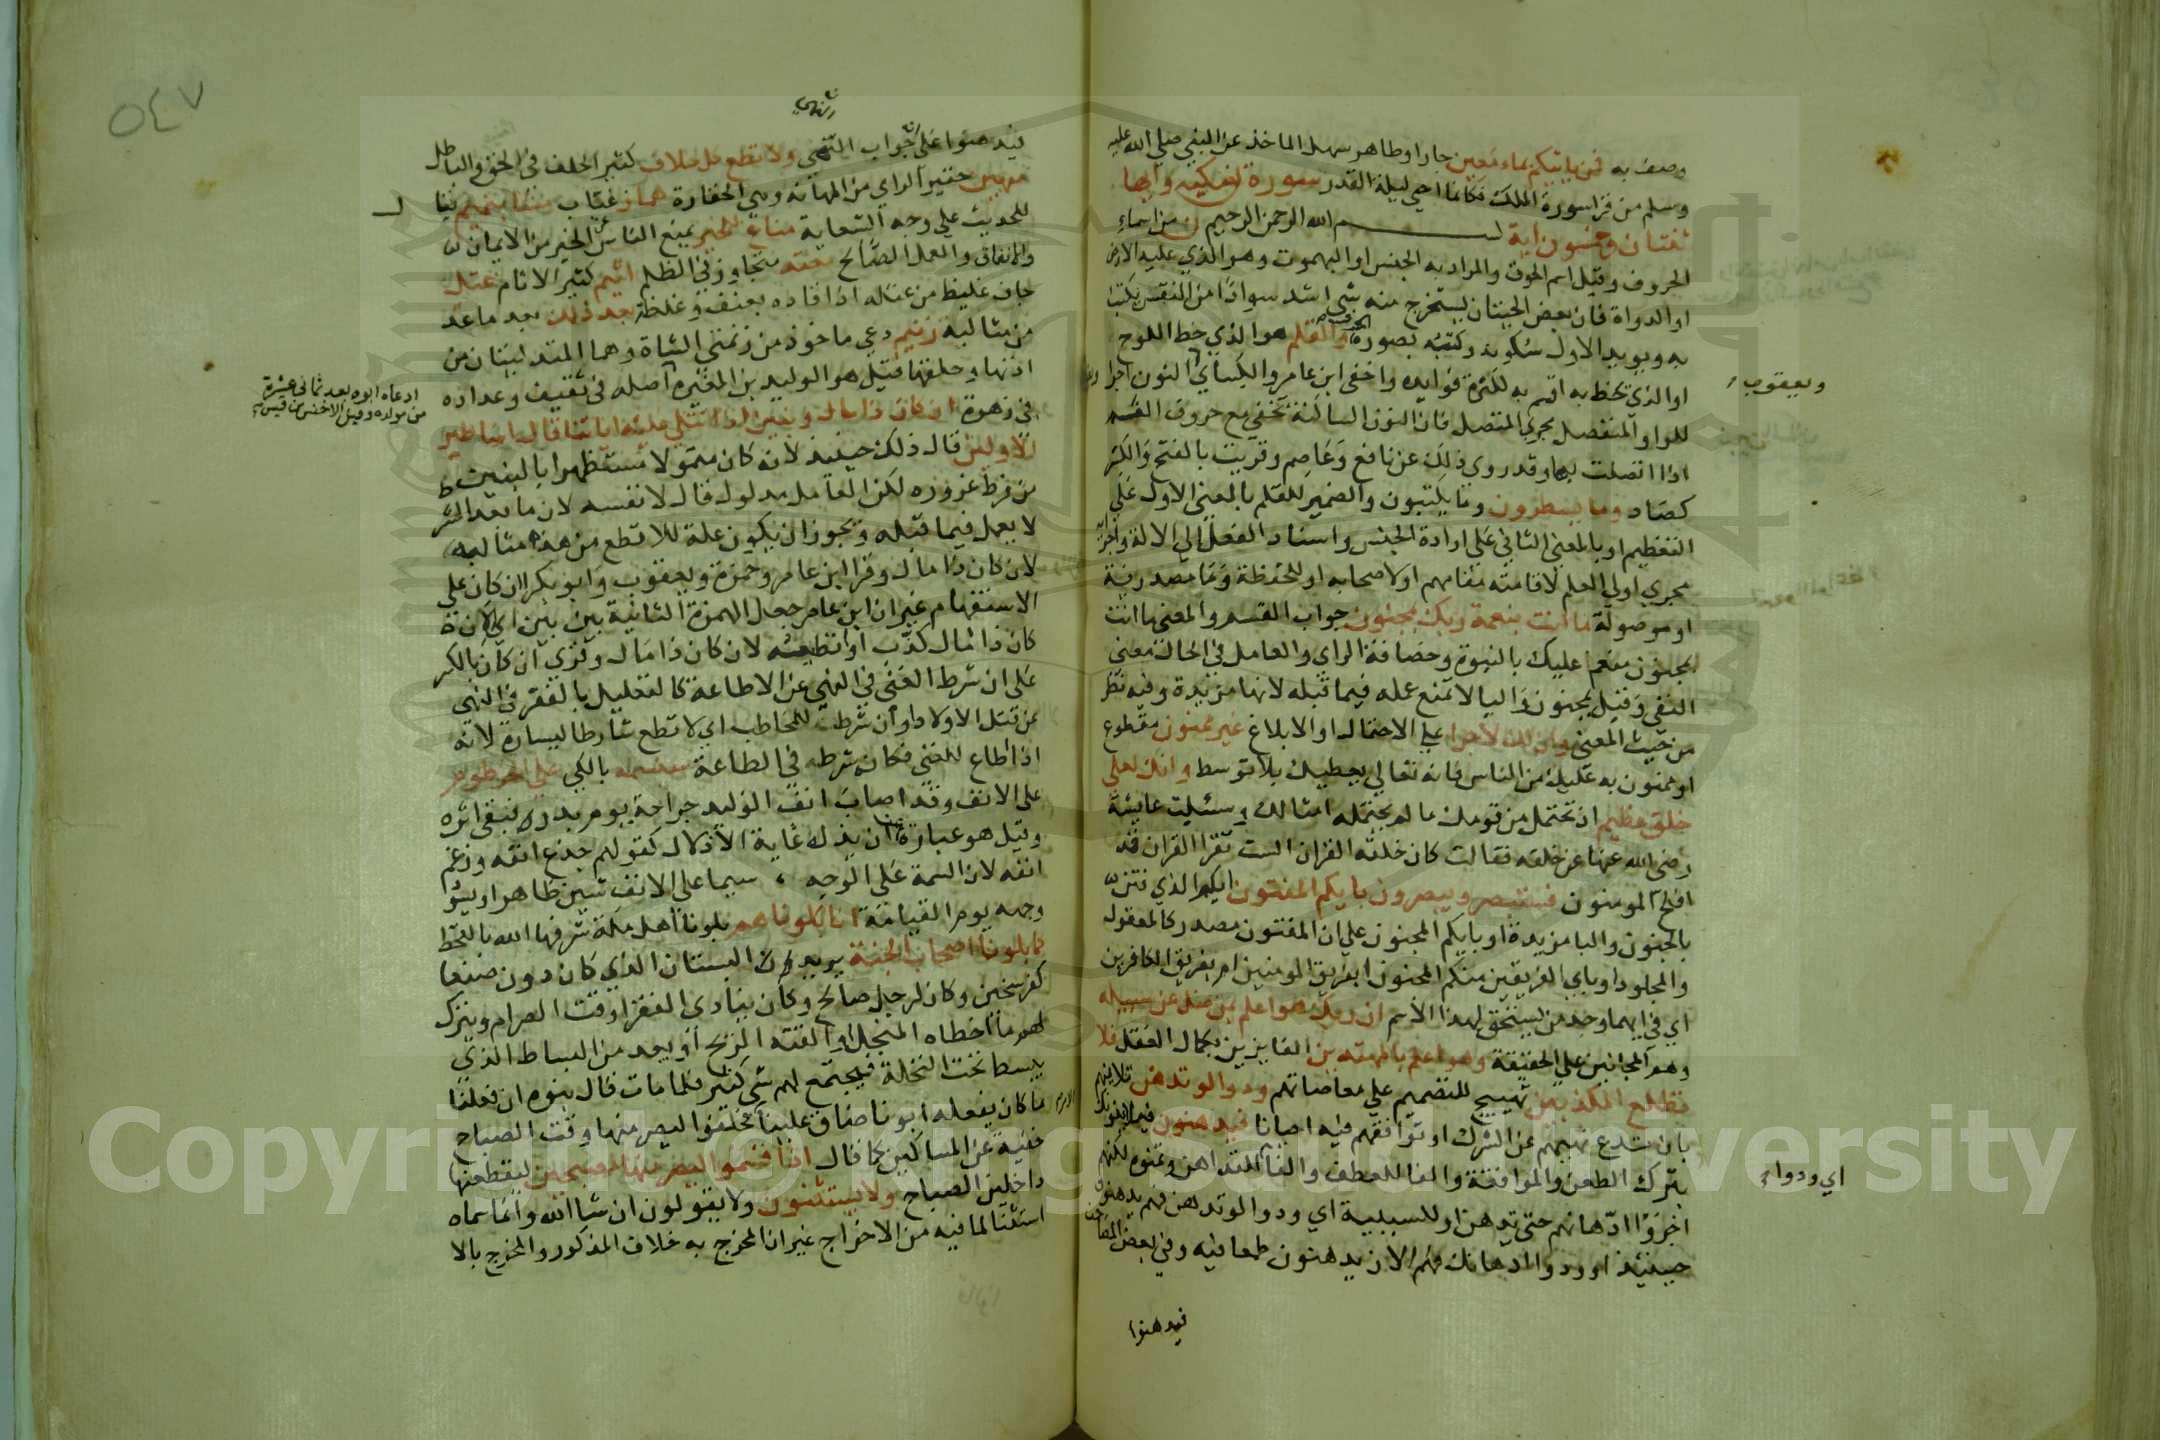 وصف به فمن ياتيكم بماء معين جار او ظاهر سهل الماخذ عن النبي صلي الله عليه
وسلم من قرا سورة الملك فكانما احي ليلة القدر سورة ن مكية وايها
ثنتان وخمسون اية بسم الله الرحمن الرحيم ن من اسماء
الحروف وقيل اسم الحوت والمراد به الجنس او البهموت وهو الذي عليه الارض
او الدواة فان بعض الحيتان يستخرج منه شي اشد سوادا من النقس يكتب
به ويويد الاول سكونه وكتبه بصورة الحرف والقلم هو الذي خط اللوح
او الذي يخط به اقسم به لكثرة فوايده واخفى ابن عامر والكساي النون اجرا
ويعقوب
للواو المنفصل مجري المتصل فان النون الساكنة تخفي مع حروف الفم
اذا اتصلت بها وقد روي ذلك عن نافع وعاصم وقريت بالفتح والكسر
كصاد وما يسطرون وما يكتبون والضمير للقلم بالمعني الاول علي
التعظيم او بالمعني الثاني علي ارادة الجنس واسناد الفعل الي الالة واجرائه
مجري اولي العلم لاقامته مقامهم او لاصحابه او للحفظة وما مصدرية
او موصولة ما انت بنعمة ربك بمجنون جواب القسم والمعني ما انت
بمجنون منعما عليك بالنبوة وحصافة الراي والعامل في الحال معني
النفي وقيل بمجنون والبا لا تمنع عمله فيما قبله لانها مزيدة وفيه نظر
من حيث المعني وان لك لاجرا علي الاحتمال او الابلاغ غير ممنون مقطوع
او ممنون به عليك من الناس فانه تعالي يعطيك بلا توسط وانك لعلي
خلق عظيم اذ تحتمل من قومك ما لم يحتمله امثالك وسئلت عايشة
رضي الله عنها عن خلقه فقالت كان خلقه القران الست تقرا القران قد
افلح المومنون فستبصر ويبصرون بايكم المفتون ايكم الذي فتن
بالجنون والبا مزيدة او بايكم المجنون علي ان المفتون مصدر كالمعقول
والمجلود او باي الفريقين منكم المجنون ابفريق المومنين ام بفريق الكافرين
اي في ايهما وجد من يستحق لهذا الاسم ان ربك هو اعلم بمن ضل عن سبيله
وهم المجانين علي الحقيقة وهو اعلم بالمهتدين الفايزين بكمال العقل فلا
تطع المكذبين تهييج للتصميم علي معاصاتهم ودوا لو تدهن تلاينهم
بان تدع نهيهم عن الشرك او توافقهم فيه احيانا فيدهنون فيلاينونك
بترك الطعن والموافقة والفا للعطف والفا اي ودوا التداهن وتمنوه لكنهم
اي ودوا
اخروا ادهانهم حتي تدهن او للسببية اي ودوا لو تدهن فهم يدهنون
حينئذ او ودوا ادهانك فهم الان يدهنون طمعا فيه وفي بعض المصاحف
فيدهنوا
٥٤٧
فيدهنوا علي جواب التمني ولا تطع كل حلاف كثير الحلف في الحق والباطل
مهين حقير الراي من المهانة وهي الحقارة هماز عياب مشاء بنميم نقال
للحديث علي وجه السعاية مناع للخير يمنع الناس عن الخير من الايمان
والانفاق والعمل الصالح معتد متجاوز في الظلم اثيم كثير الاثام عتل
جاف غليظ من عتله اذا قاده بعنف وغلظة بعد ذلك بعد ما عد
من مثالبه زنيم دعي ماخوذ من زنمتي الشاة وهما المتدليتان من
اذنها وحلقها قيل هو الوليد بن المغيرة اصله في ثقيف وعداده
ادعاه ابوه بعد ثماني عشرة
من مولده وقيل الاخنس بن
في زهرة ان كان ذا مال وبنين اذا تتلي عليه اياتنا قال اساطير
الاولين قال ذلك حينئذ لانه كان متمولا مستظهرا بالبنين
من فرط غروره لكن العامل مدلول قال لا نفسه لان ما بعد الشرط
لا يعمل فيما قبله ويجوز ان يكون علة للا تطع من هذه مثالبه
لان كان ذا مال وقرا ابن عامر وحمزة ويعقوب وابو بكر اان كان علي
الاستفهام غير ان ابن عامر جعل الهمزة الثانية بين بين اي الان
كان ذا مال كذب او اتطيعه لان كان ذا مال وقري ان كان بالكسر
علي ان شرط الغني في النهي عن الاطاعة كالتعليل بالفقر في النهي
عن قتل الاولاد او ان شرطه للمخاطب اي لا تطع شارطا يساره لانه
اذا اطاع للغني فكانه شرطه في الطاعة سنسمه بالكي علي الخرطوم
علي الانف وقد اصاب انف الوليد جراحة يوم بدر فبقي اثره
وقيل هو عبارة عن ان يذله غاية الاذلال كقولهم جدع انفه ورغم
انفه لان السمة علي الوجه سيما علي الانف شين ظاهر او يسود
وجهه يوم القيامة انا بلوناهم بلونا اهل مكة شرفها الله بالقحط
كما بلونا اصحاب الجنة يريد البستان الذي كان دون صنعا
بفرسخين وكان لرجل صالح وكان ينادي الفقرا وقت الصرام ويترك
لهم ما اخطاه المنجل او القته الريح او بعد من البساط الذي
يبسط تحت النخلة فيجتمع لهم شي كثير فلما مات قال بنوه ان فعلنا
ما كان يفعله ابونا ضاق علينا الامر فحلفوا ليصرمنها وقت الصباح
خفية عن المساكين كما قال اذ اقسموا ليصرمنها مصبحين ليقطعنها
داخلين الصباح ولا يستثنون ولا يقولون ان شا الله وانما سماه
استثنا لما فيه من الاخراج غير ان المخرج به خلاف المذكور والمخرج بالا
Copyright © King Saud University